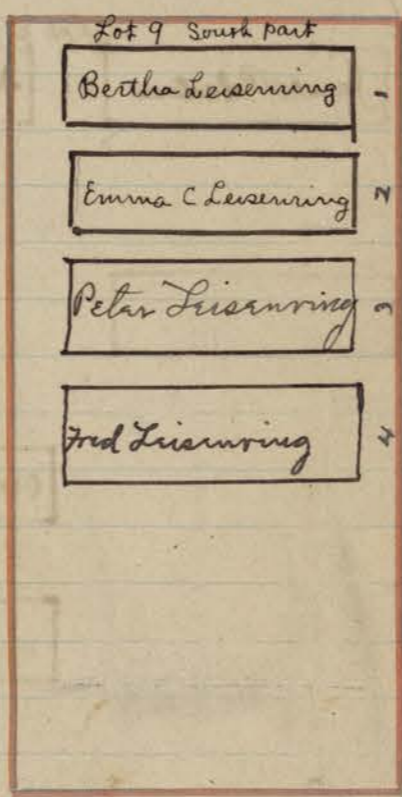 Lot 9 South part
Bertha Leisenring 1
Emma C Leisenring 2
Peter Leisenring 3
Fred Leisenring 4